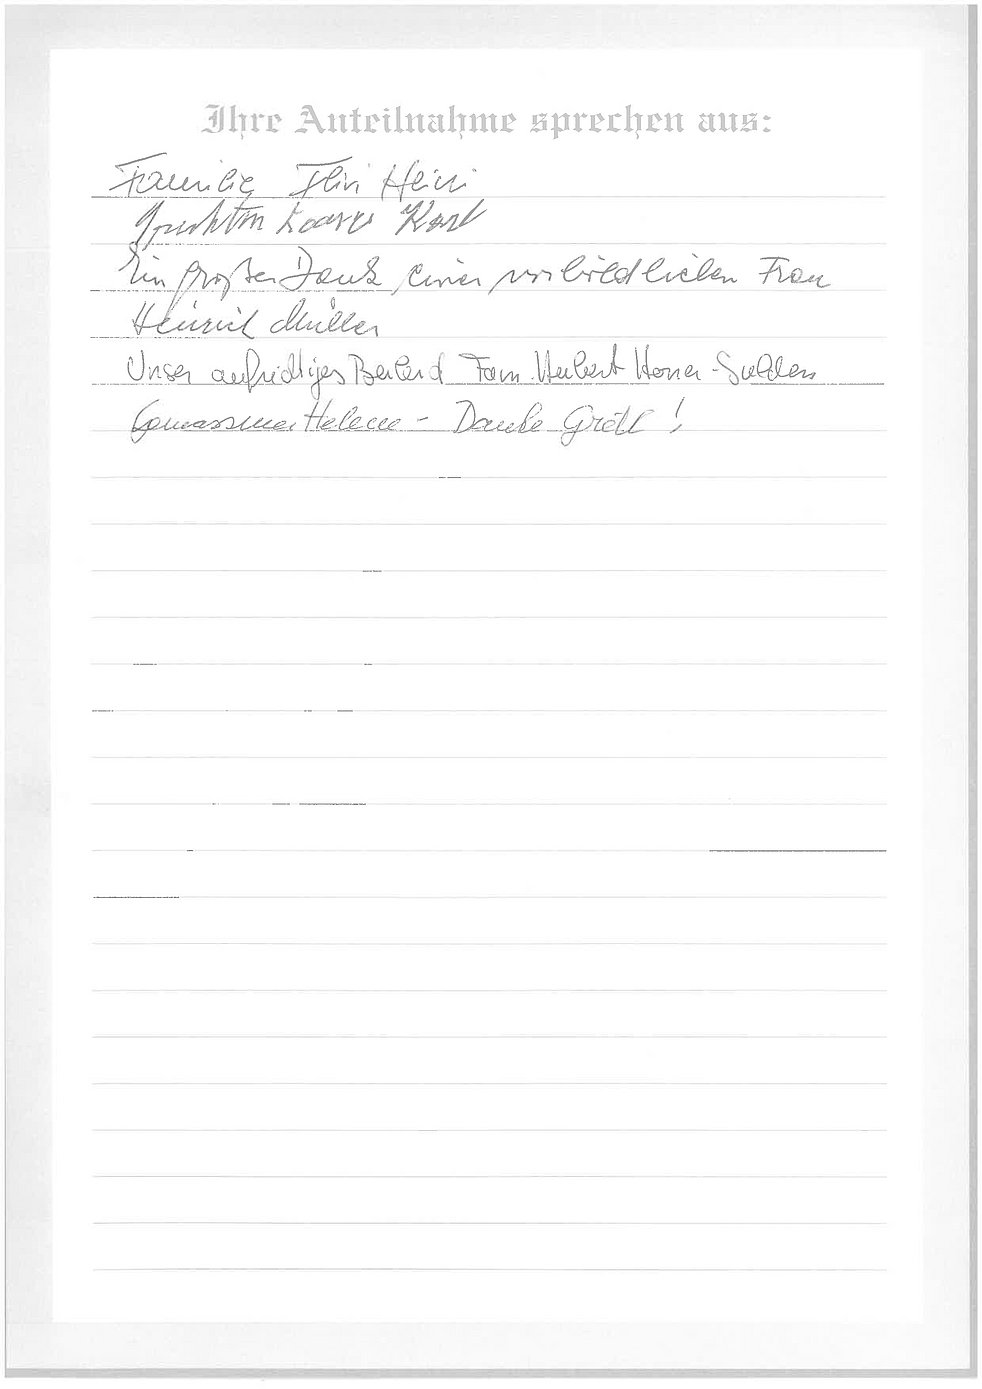 Ihre Anteilnahme sprechen aus:
Familie Heini
Karl
Ein großer Dank einer vorbildlichen Frau
Heinrich Müller
Unser aufrichtiges Beileid Fam. Herbert - Sulden
Helene - Danke Gretl !